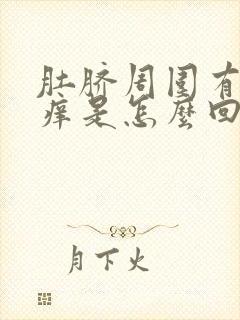 肚脐周围有
痒是怎麼回
月下火